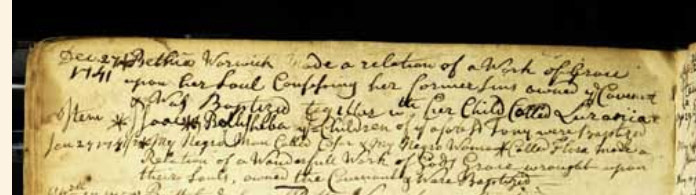 Decr 27th Bethia Warwick made a relation of a Work of Grace
1741 upon her Soul Confessing her former Sins owned ye Covent
& Was Baptized together wth her Child Called
Item * Isaac * Bathsheba ye Children of ye aforesd Tony were Baptized
Jan 27 1741/2 My Negro Man Called & My Negro Woman Called Flora made a
Relation of a Wonderfull Work of Gods Grace wrought upon
their Souls, owned the Covenant & Were Baptized